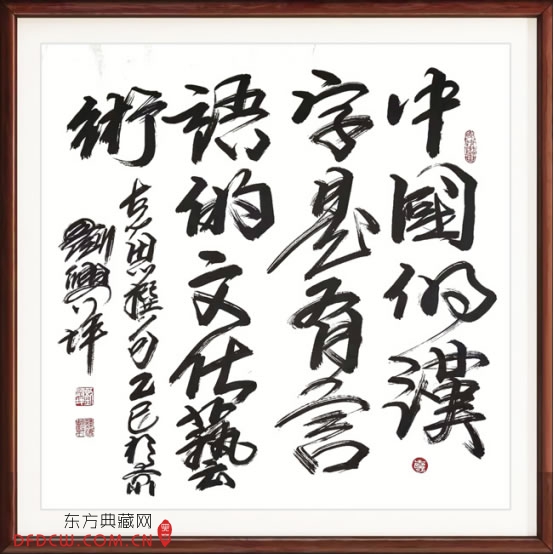 中國的漢
字是有言
語的文化藝
術
乙巳
劉興祥
东方典藏网
DFDCW.COM.CN